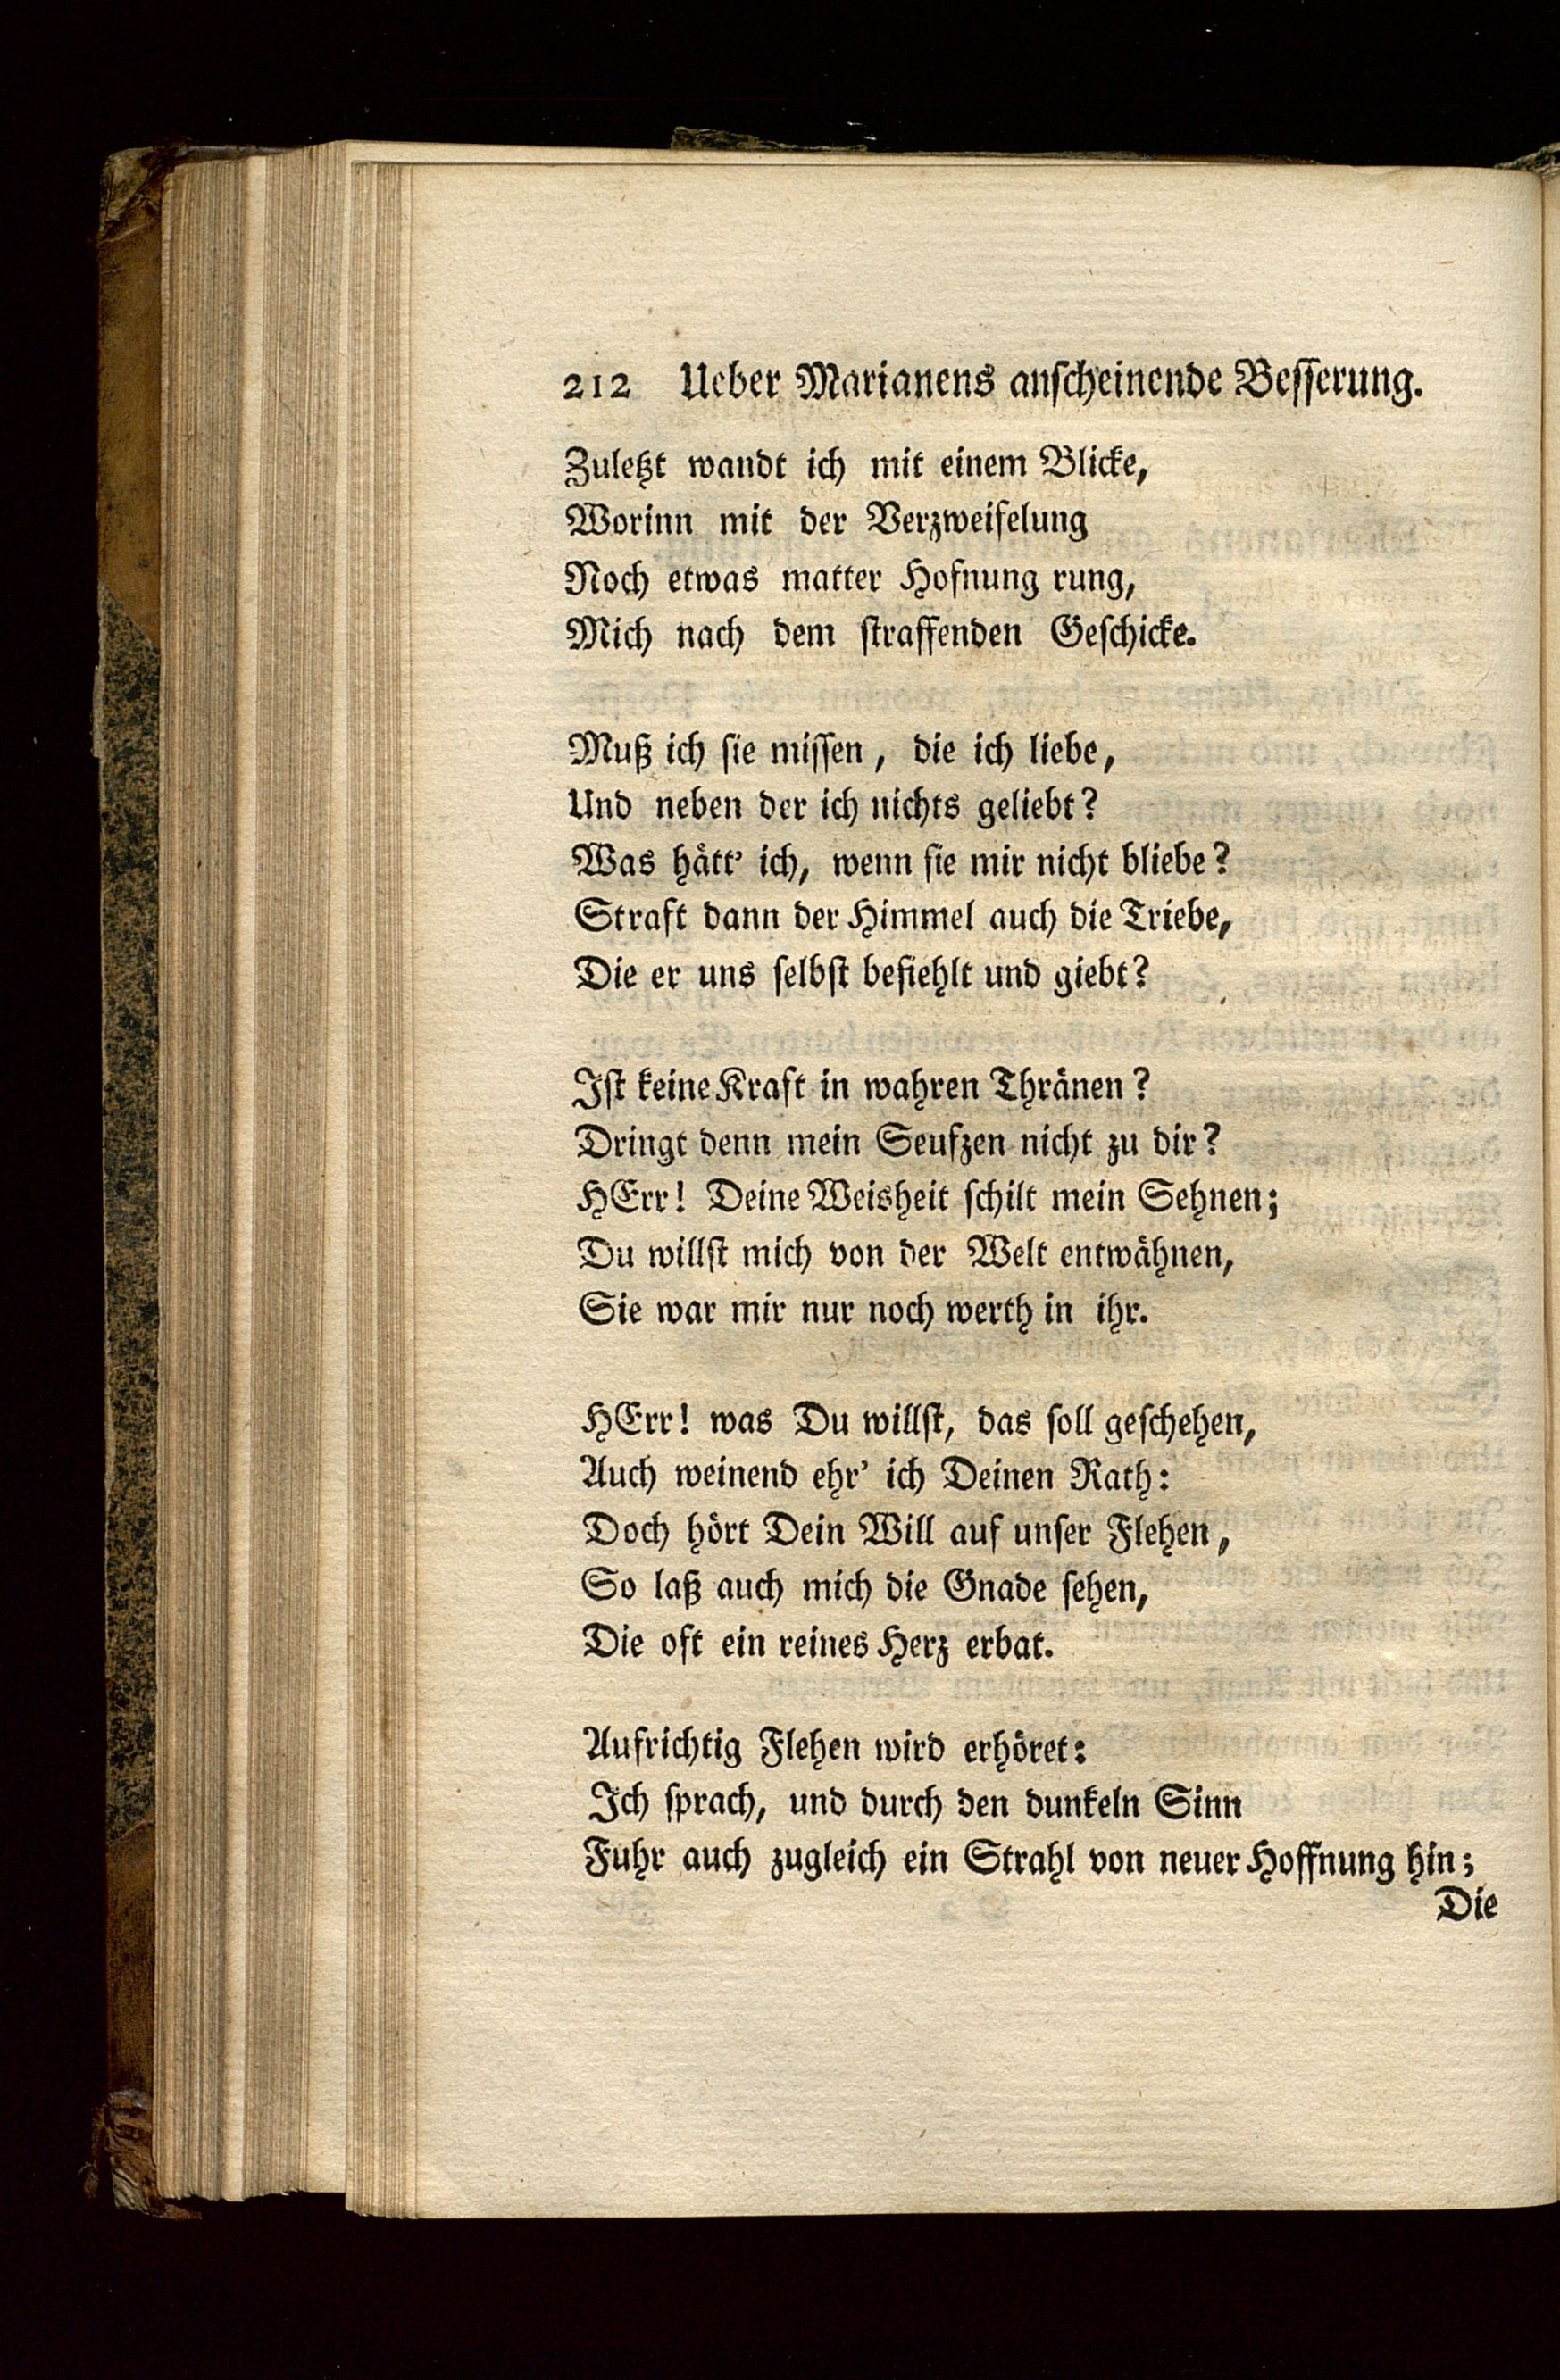 212 Ueber Marianens anscheinende Besserung.
Zuletzt wandt ich mit einem Blicke,
Worinn mit der Verzweifelung
Noch etwas matter Hofnung rung,
Mich nach dem straffenden Geschicke.
Muß ich sie missen, die ich liebe,
Und neben der ich nichts geliebt?
Was hätt' ich, wenn sie mir nicht bliebe?
Straft dann der Himmel auch die Triebe,
Die er uns selbst befiehlt und giebt?
Ist keine Kraft in wahren Thränen?
Dringt denn mein Seufzen nicht zu dir?
HErr! Deine Weisheit schilt mein Sehnen;
Du willst mich von der Welt entwähnen,
Sie war mir nur noch werth in ihr.
HErr! was Du willst, das soll geschehen,
Auch weinend ehr' ich Deinen Rath:
Doch hört Dein Will auf unser Flehen,
So laß auch mich die Gnade sehen,
Die oft ein reines Herz erbat.
Aufrichtig Flehen wird erhöret:
Ich sprach, und durch den dunkeln Sinn
Fuhr auch zugleich ein Strahl von neuer Hoffnung hin;
Die